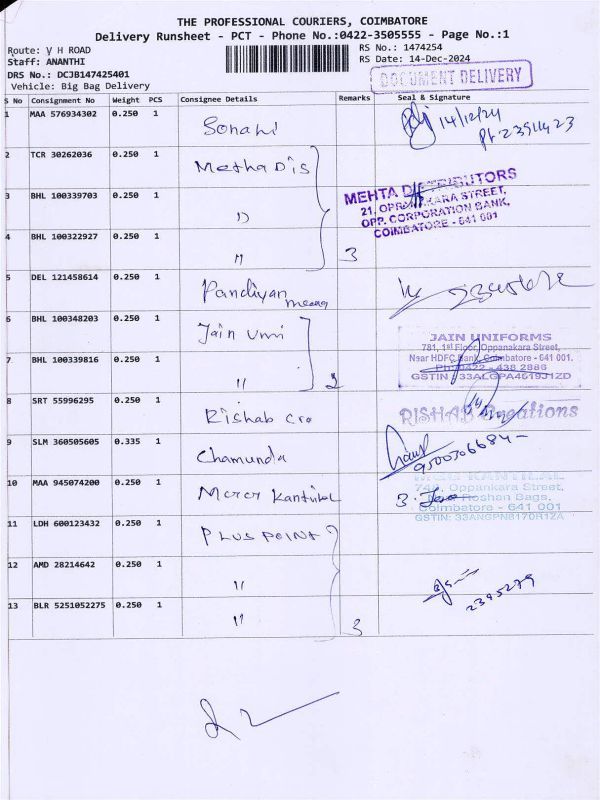 THE PROFESSIONAL COURIERS, COIMBATORE
Delivery Runsheet - PCT - Phone No.:0422-3505555 - Page No.:1
Route: V H ROAD
RS No.: 1474254
Staff: ANANTHI
RS Date: 14-Dec-2024
DRS No.: DCJB147425401
DOCUMENT DELIVERY
Vehicle: Big Bag Delivery
S No Consignment No Weight PCS Consignee Details Remarks Seal & Signature
1 MAA 576934302 0.250 1
14/12/24
2 TCR 30262036 0.250 1 Metha Dis
MEHTA DISTRIBUTORS
3 BHL 100339703 0.250 1 "
OPP. CORPORATION BANK,
COIMBATORE - 641 001
4 BHL 100322927 0.250 1 " 3
5 DEL 121458614 0.250 1 Pandiyan
6 BHL 100348203 0.250 1 Jain Uni
JAIN UNIFORMS
781, 1st Floor, Oppanakara Street,
Near HDFC Bank, Coimbatore - 641 001.
Ph: 0422 - 438 2886
7 BHL 100339816 0.250 1 " 2
8 SRT 55996295 0.250 1 Rishab cro
RISHAB Creations
9 SLM 360505605 0.335 1 Chamunda
10 MAA 945074200 0.250 1
Oppankara Street,
Roshan Bags,
Coimbatore - 641 001
11 LDH 600123432 0.250 1 PLUS POINT
12 AMD 28214642 0.250 1 "
13 BLR 5251052275 0.250 1 " 3